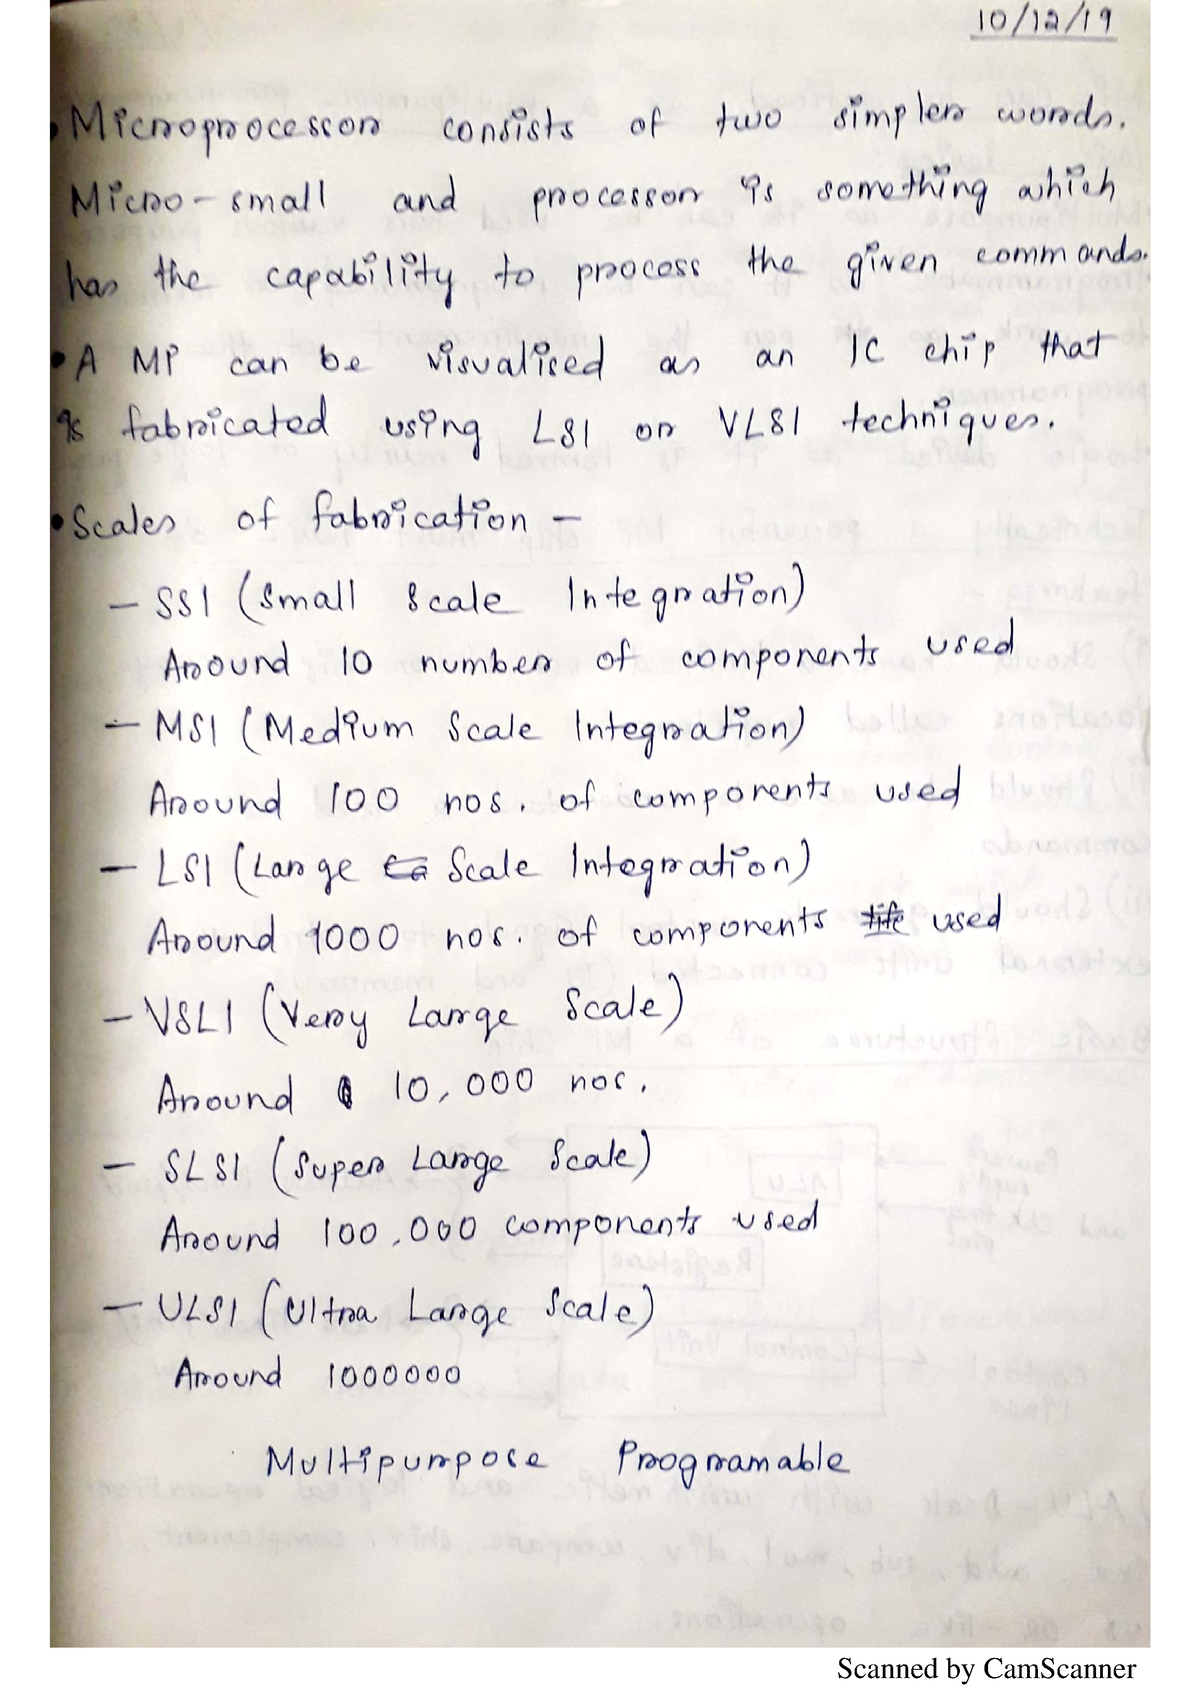 10/12/19
• Microprocessor consists of two simpler words.
Micro - small and processor is something which
has the capability to process the given commands.
• A MP can be visualised as an IC chip that
is fabricated using LSI or VLSI techniques.
• Scales of fabrication —
— SSI (Small Scale Integration)
Around 10 number of components used
— MSI (Medium Scale Integration)
Around 100 nos. of components used
— LSI (Large Scale Integration)
Around 1000 nos. of components used
— VSLI (Very Large Scale)
Around 10,000 nos.
— SLSI (Super Large Scale)
Around 100,000 components used
— ULSI (Ultra Large Scale)
Around 1000000
Multipurpose Programable
Scanned by CamScanner